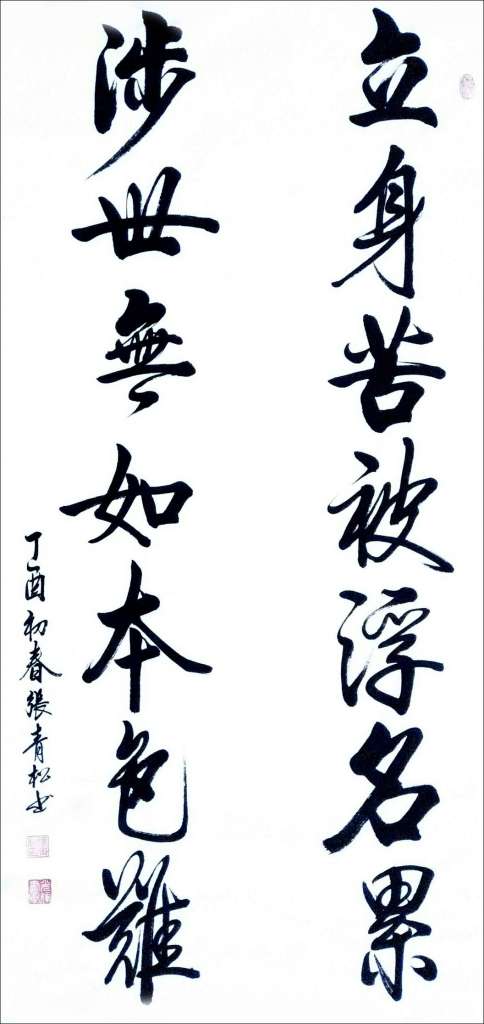 立身苦被浮名累
涉世無如本色難
丁酉初春張青松书